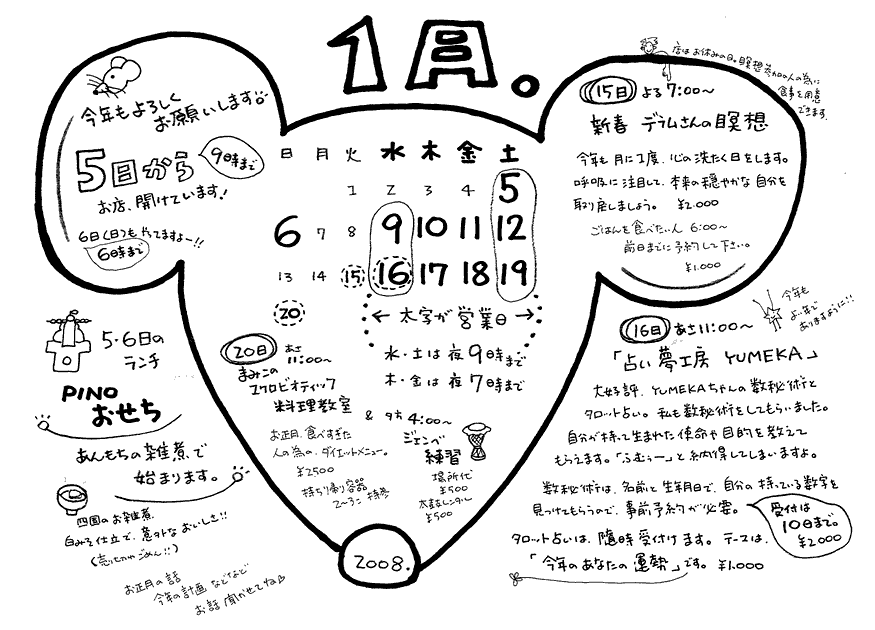 1月。
今年もよろしく
お願いします
5日から
9時まで
お店、開けています!
6日(日)もやってますよー!!
6時まで
日 月 火 水 木 金 土
1 2 3 4 5
6 7 8 9 10 11 12
13 14 15 16 17 18 19
20
← 太字が営業日 →
水・土は夜9時まで
木・金は夜7時まで
店はお休みの日。瞑想参加の人の為に
食事を用意
できます。
15日 よる7:00〜
新春 デラムさんの瞑想
今年も月に1度、心の洗たく日をします。
呼吸に注目して、本来の穏やかな自分を
取り戻しましょう。 ¥2.000
ごはんを食べたい人 6:00〜
前日までに予約して下さい。
¥1.000
今年も
よい年で
ありますように!!
16日 あさ11:00〜
「占い夢工房 YUMEKA」
大好評、YUMEKAちゃんの数秘術と
タロット占い。私も数秘術をしてもらいました。
自分が持って生まれた使命や目的を教えて
もらえます。「ふむぅー」と納得してしまいますよ。
数秘術は、名前と生年月日で、自分の持っている数字を
見つけてもらうので、事前予約が必要。
受付は
10日まで。
¥2000
タロット占いは、随時受付けます。テーマは、
「今年のあなたの運勢」です。¥1.000
5・6日の
ランチ
PINO
おせち
あんもちの雑煮で
始まります。
四国のお雑煮
白みそ仕立で、意外なおいしさ!!
(売切れごめん!!)
お正月の話
今年の計画などなど
お話聞かせてね
20日 あさ
11:00〜
まみこの
マクロビオティック
料理教室
お正月、食べすぎた
人の為の、ダイエットメニュー。
¥2500
持ち帰り容器
2〜3こ 持参
& 夕方 4:00〜
ジェンベ
練習
場所代
¥500
太鼓レンタル
¥500
2008.